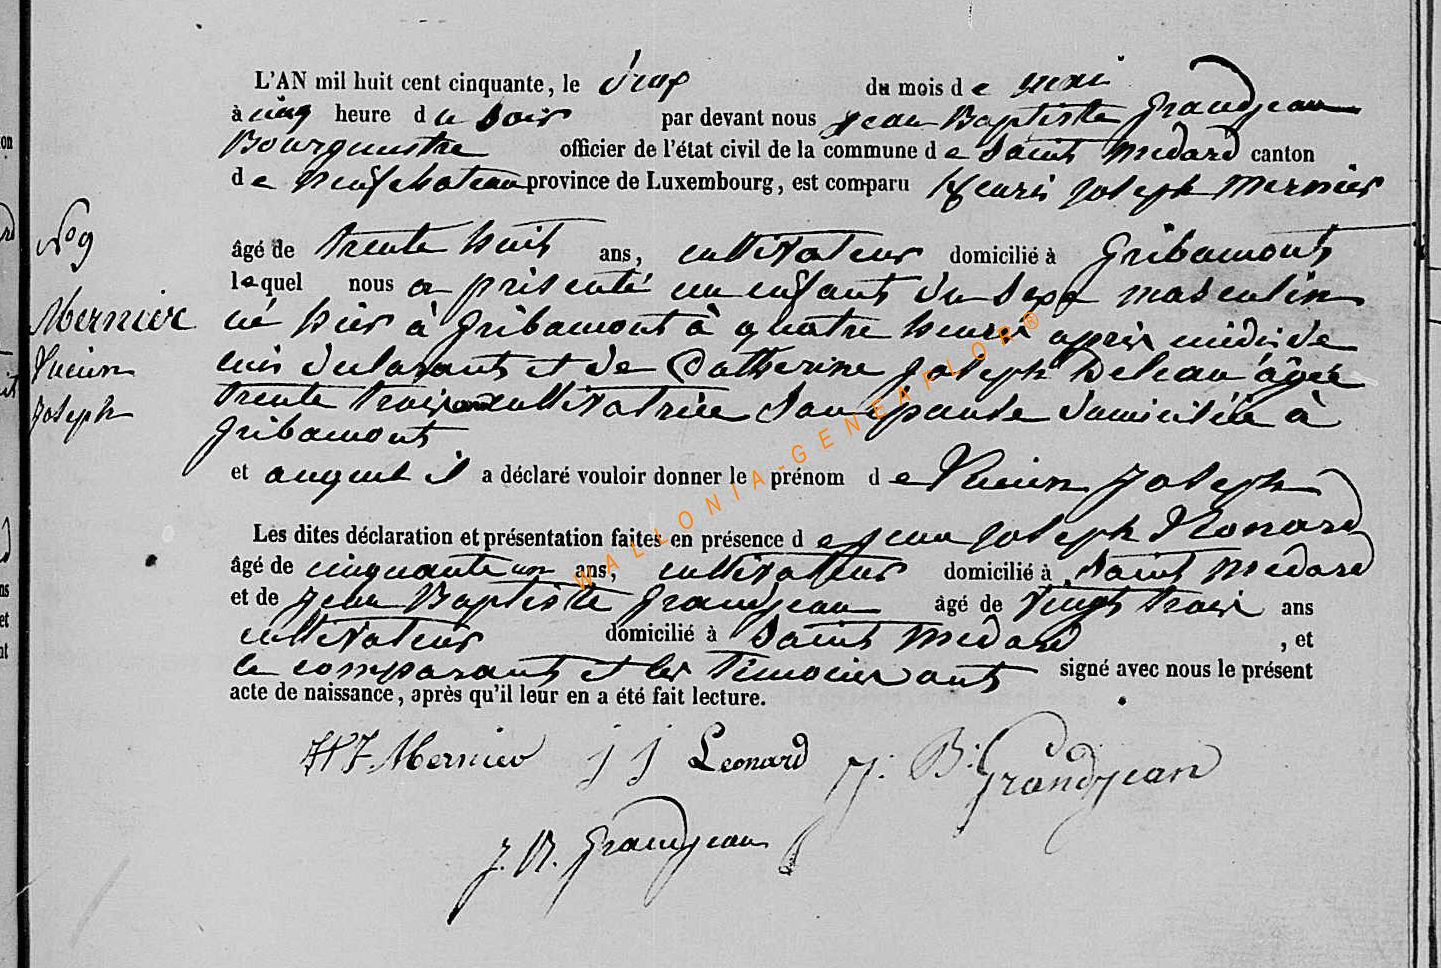 L'AN mil huit cent cinquante, le deux du mois de mai
à cinq heure du soir par devant nous Jean Baptiste Grandjean
Bourgmestre officier de l'état civil de la commune de Saint Medard canton
de neufchateau province de Luxembourg, est comparu Henri Joseph Mernier
N° 9
âgé de trente huit ans, cultivateur domicilié à Gribamont
lequel nous a présenté un enfant du sexe masculin
Mernier
né hier à Gribamont à quatre heures après midi de
Lucien
lui déclarant et de Catherine Joseph Deleau âgée
Joseph
trente trois ans cultivatrice son épouse domiciliée à
Gribamont
et auquel il a déclaré vouloir donner le prénom de Lucien Joseph
Les dites déclaration et présentation faites en présence de Jean Joseph Léonard
âgé de cinquante un ans, cultivateur domicilié à Saint Medard
et de Jean Baptiste Grandjean âgé de vingt trois ans
cultivateur domicilié à Saint Medard , et
le comparant et les témoins ont signé avec nous le présent
acte de naissance, après qu'il leur en a été fait lecture.
H J Mernier J J Leonard J. B. Grandjean
J. B. Grandjean
WALLONIA-GENEAFLOR®